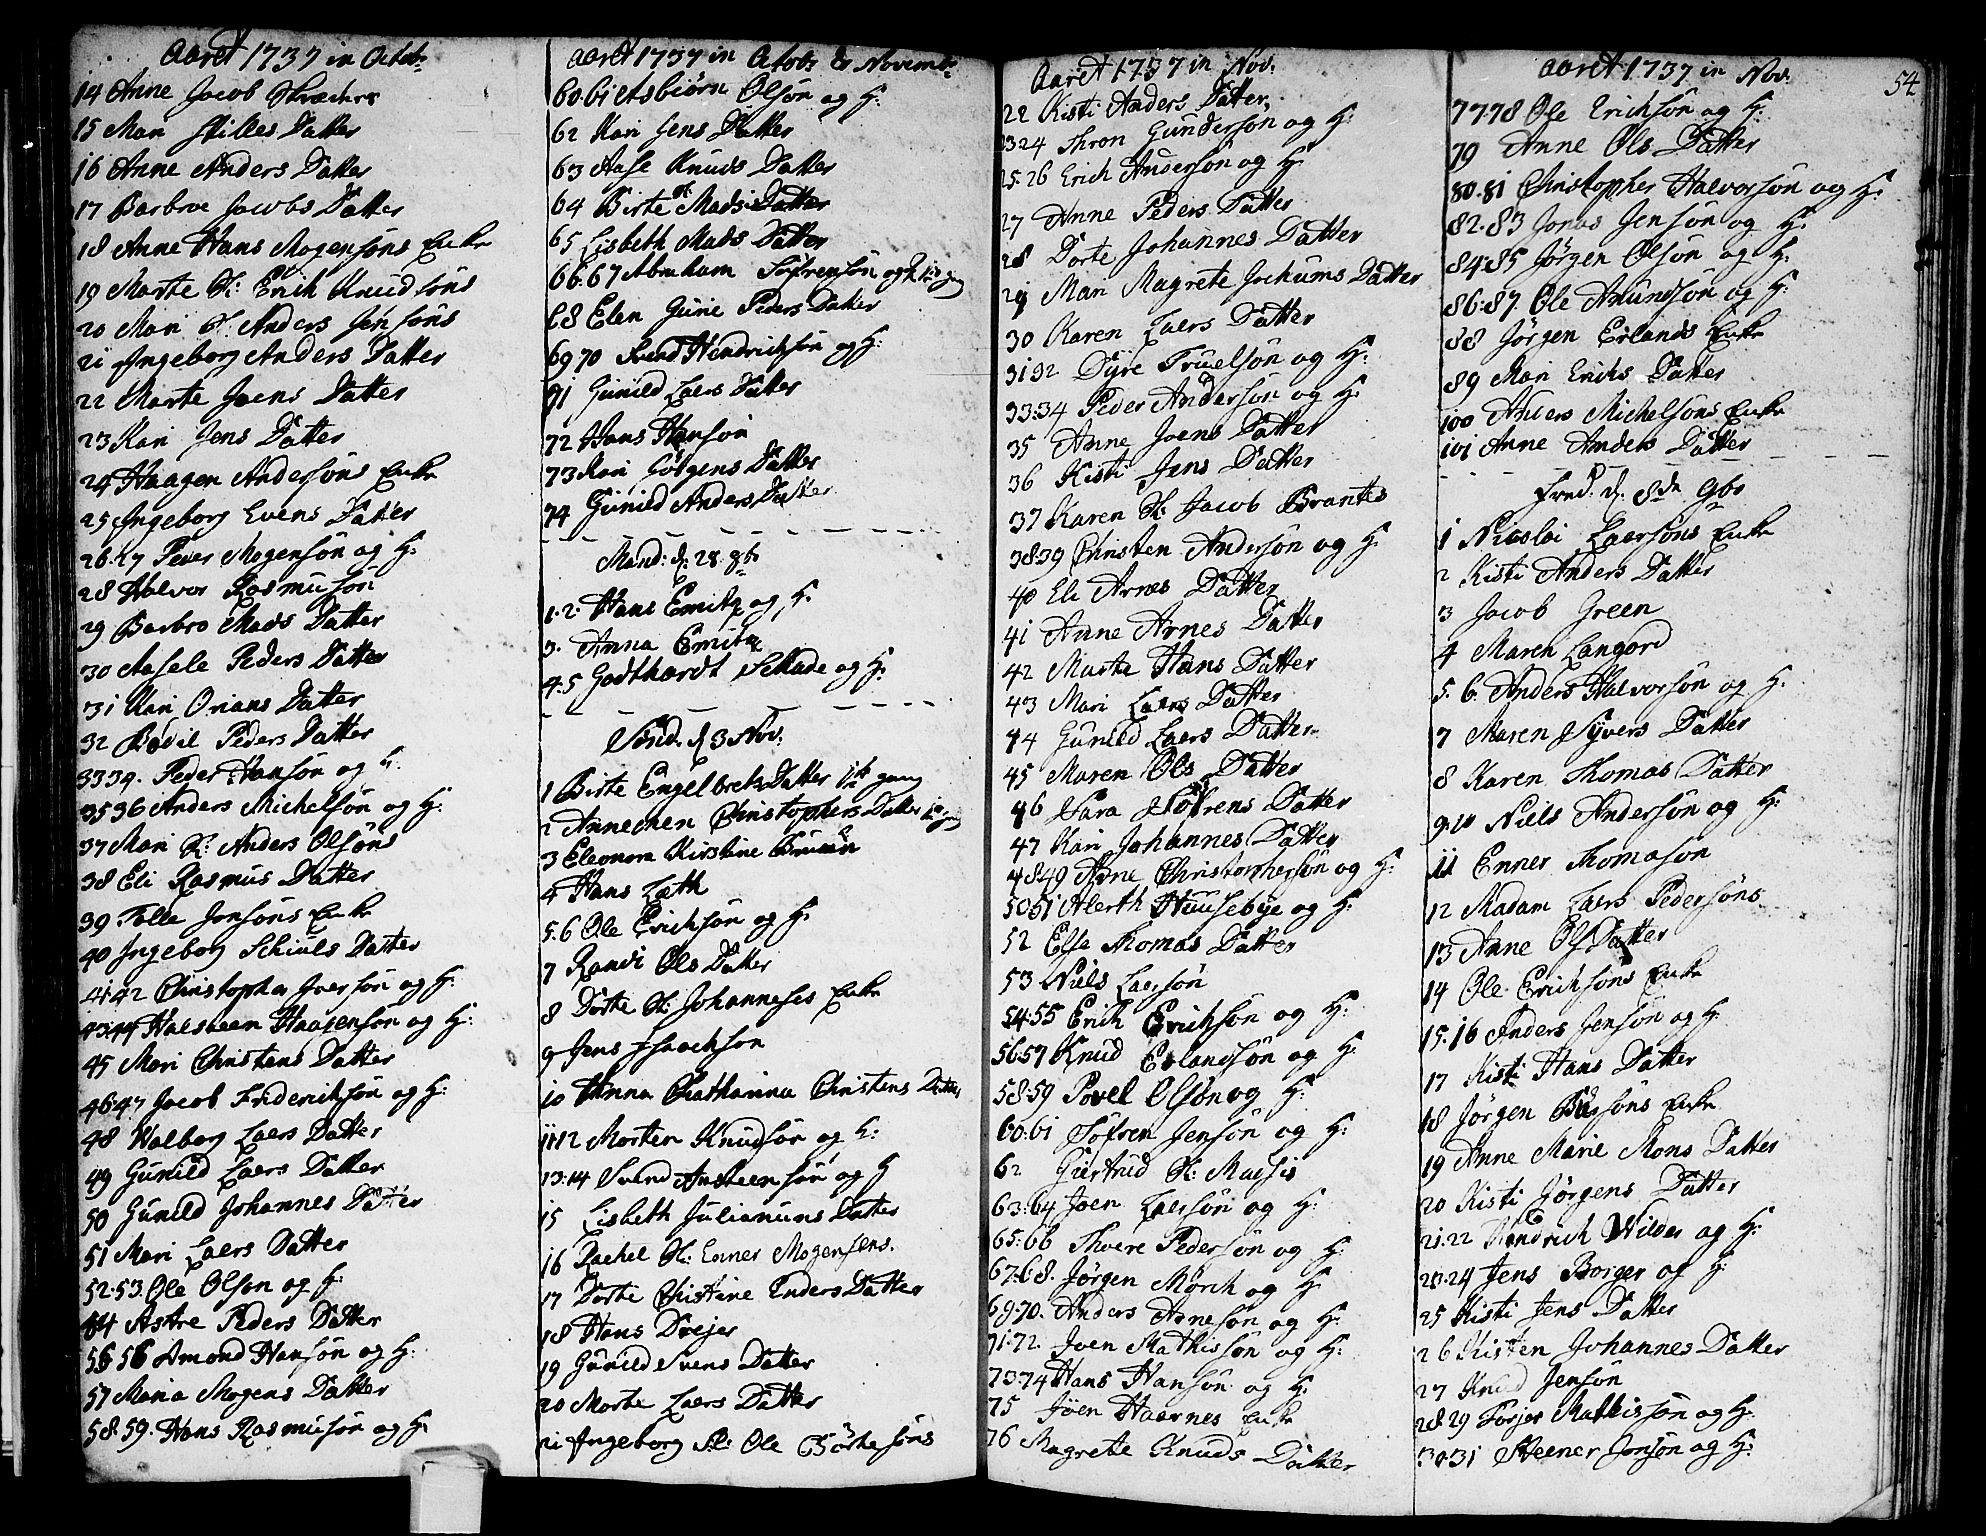 Aaret 1737 in Octob:
14 Anne Jacob Skræders
15 Mari Pilles Datter
16 Anne Anders Datter
17 Barbroe Jacobs Datter
18 Anne Hans Mogensøns Enke
19 Marte Sl: Erik Knudsøns
20 Mari Sl: Anders Jensøns
21 Ingeborg Anders Datter
22 Marte Joens Datter
23 Kari Jens Datter
24 Haagen Andersøns Enke
25 Ingeborg Evens Datter
26.27 Peder Mogensøn og H:
28 Halvor Rasmusøn
29 Barbro Mads Datter
30 Aasele Peders Datter
31 Kari Orians Datter
32 Bodil Peders Datter
33 34. Peder Hansøn og H.
35 36 Anders Michelsøn og H:
37 Mari Sl: Anders Olsøns
38 Eli Rasmus Datter
39 Tolle Jonsøns Enke
40 Ingeborg Schiuls Datter
41.42 Christopher Iversøn og H:
43.44 Halsteen Haagensøn og H:
45 Mari Christens Datter
46:47 Jacob Friderichsøn og H:
48 Walborg Laers Datter
49 Gunild Laers Datter
50 Gunild Johannes Datter
51 Mari Laers Datter
52.53. Ole Olsøn og H:
44 Astre Peders Datter
56 56 Amond Hansøn og H:
57 Maria Mogens Datter
58.59. Hans Rasmusøn og H:
Aaret 1737 in Octob: & Novemb:
60.61 Asbiørn Olsøn og H:
62 Kari Jens Datter
63 Aase Knuds Datter
64 Birte Mads Datter
65 Lisbeth Mads Datter
66.67 Abraham Søfrensøn og H. 1te gang
68 Elen Gurie Peders Datter
69 70 Svend Hendrichsøn og H:
71 Gunild Laers Datter
72 Hans Hansøn
73 Kari Jørgens Datter
74 Gunild Anders Datter
Mand: d: 28. 8br
1.2. Hans Emitz og H.
3. Anna Emitz
4.5 Godthardt Schade og H:
Sönd. d 3 Nov:
1 Birte Engelbrets Datter 1te gang
2 Annechen Christophers Datter 1te gang
3 Eleonora Kirstine Bruun
4 Hans Lath
5.6 Ole Erichsøn og H:
7 Randi Ols Datter
8 Dorte Sl: Johanneses Enke
9 Jens Isaachsøn
10 Anna Chatharina Christens Datter
11 12 Morten Knudsøn og H:
13:14 Svend Austeensøn og H
15 Lisbeth Julianuns Datter
16 Rachel Sl: Enner Mogensøns.
17 Dorte Christine Enders Datter
18 Hans Doejer
19 Gunild Svens Datter
20 Morte Laers Datter
21 Ingeborg Sl: Ole Børkesøns
Aaret 1737 in Nov:
22 Kisti Anders Datter,
23 24 Thron Gundersøn og H:
25.26 Erich Andersøn og H:
27 Anne Peders Datter
28 Dorte Johannes Datter
29 Mari Magrete Jochums Datter
30 Karen Laers Datter
31 32 Dyre Truelsøn og H:
33:34 Peder Andersøn og H:
35 Anne Joens Datter
36 Kisti Jens Datter
37 Karen Sl: Jacob Brantes
38 39 Christen Andersøn og H:
40 Eli Arnes Datter
41 Anne Arnes Datter
42 Marte Hans Datter
43 Mari Laers Datter
44 Gunild Laers Datter
45 Maren Ols Datter
46 Sara Søfrens Datter
47 Kari Johannes Datter
48 49 Arne Christophersøn og H:
50 51 Alerth Huusebye og H:
52 Else Thomas Datter
53 Niels Laersøn
54:55 Erich Erichsøn og H:
56:57 Knud Erlandsøn og H:
58:59 Povel Olsøn og H:
60.61 Søfren Jensøn og H:
62 Giertrud Sl: Madsis
63:64 Joen Laersøn og H:
65:66 Thore Pedersøn og H:
67:68. Jørgen Mørch og H:
69.70. Anders Arnesøn og H:
71:72. Joen Mathissøn og H:
73:74 Hans Hansøn og H:
75 Joen Haarnes Enke
76 Magrete Knuds Datter
Aaret 1737 in Nov:
54
77.78 Ole Erichsøn og H:
79 Anne Ols Datter
80.81 Christopher Halvorsøn og H:
82.83 Jonas Jensøn og H:
84:85 Jørgen Olsøn og H:
86:87. Ole Amundsøn og H:
88 Jørgen Erlands Enke
89 Mari Erichs Datter
100 Anders Michelsøns Enke
101 Anne Anders Datter
Fred. d. 8de 9br
1 Nicolai Laersøns Enke
2 Kisti Anders Datter
3 Jacob Green
4 Maren Langord
5.6. Anders Halvorsøn og H.
7 Maren Syvers Datter
8 Karen Thomas Datter
9.10 Niels Andersøn og H:
11 Enner Thomasøn
12 Madam Laers Pedersøns
13 Anne Ols Datter
14 Ole Erichsøns Enke
15.16 Anders Jensøn og H:
17 Kisti Hans Datter
18 Jørgen Børsøns Enke
19 Anne Marie Mons Datter
20 Kisti Jørgens Datter
21.22 Hendrich Wilder og H:
23.24 Jens Borger og H:
25 Kisti Jens Datter
26 Kisten Johannes Datter
27 Knud Jensøn
28 29 Torjer Mathissøn og H:
30.31 Steener Jonsøn og H: